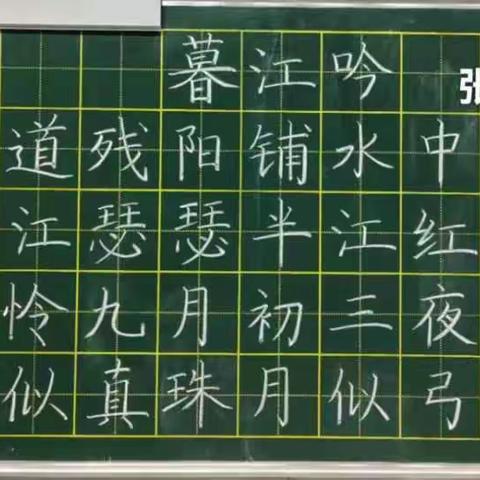 暮江吟
张
道残阳铺水中
江瑟瑟半江红
怜九月初三夜
似真珠月似弓